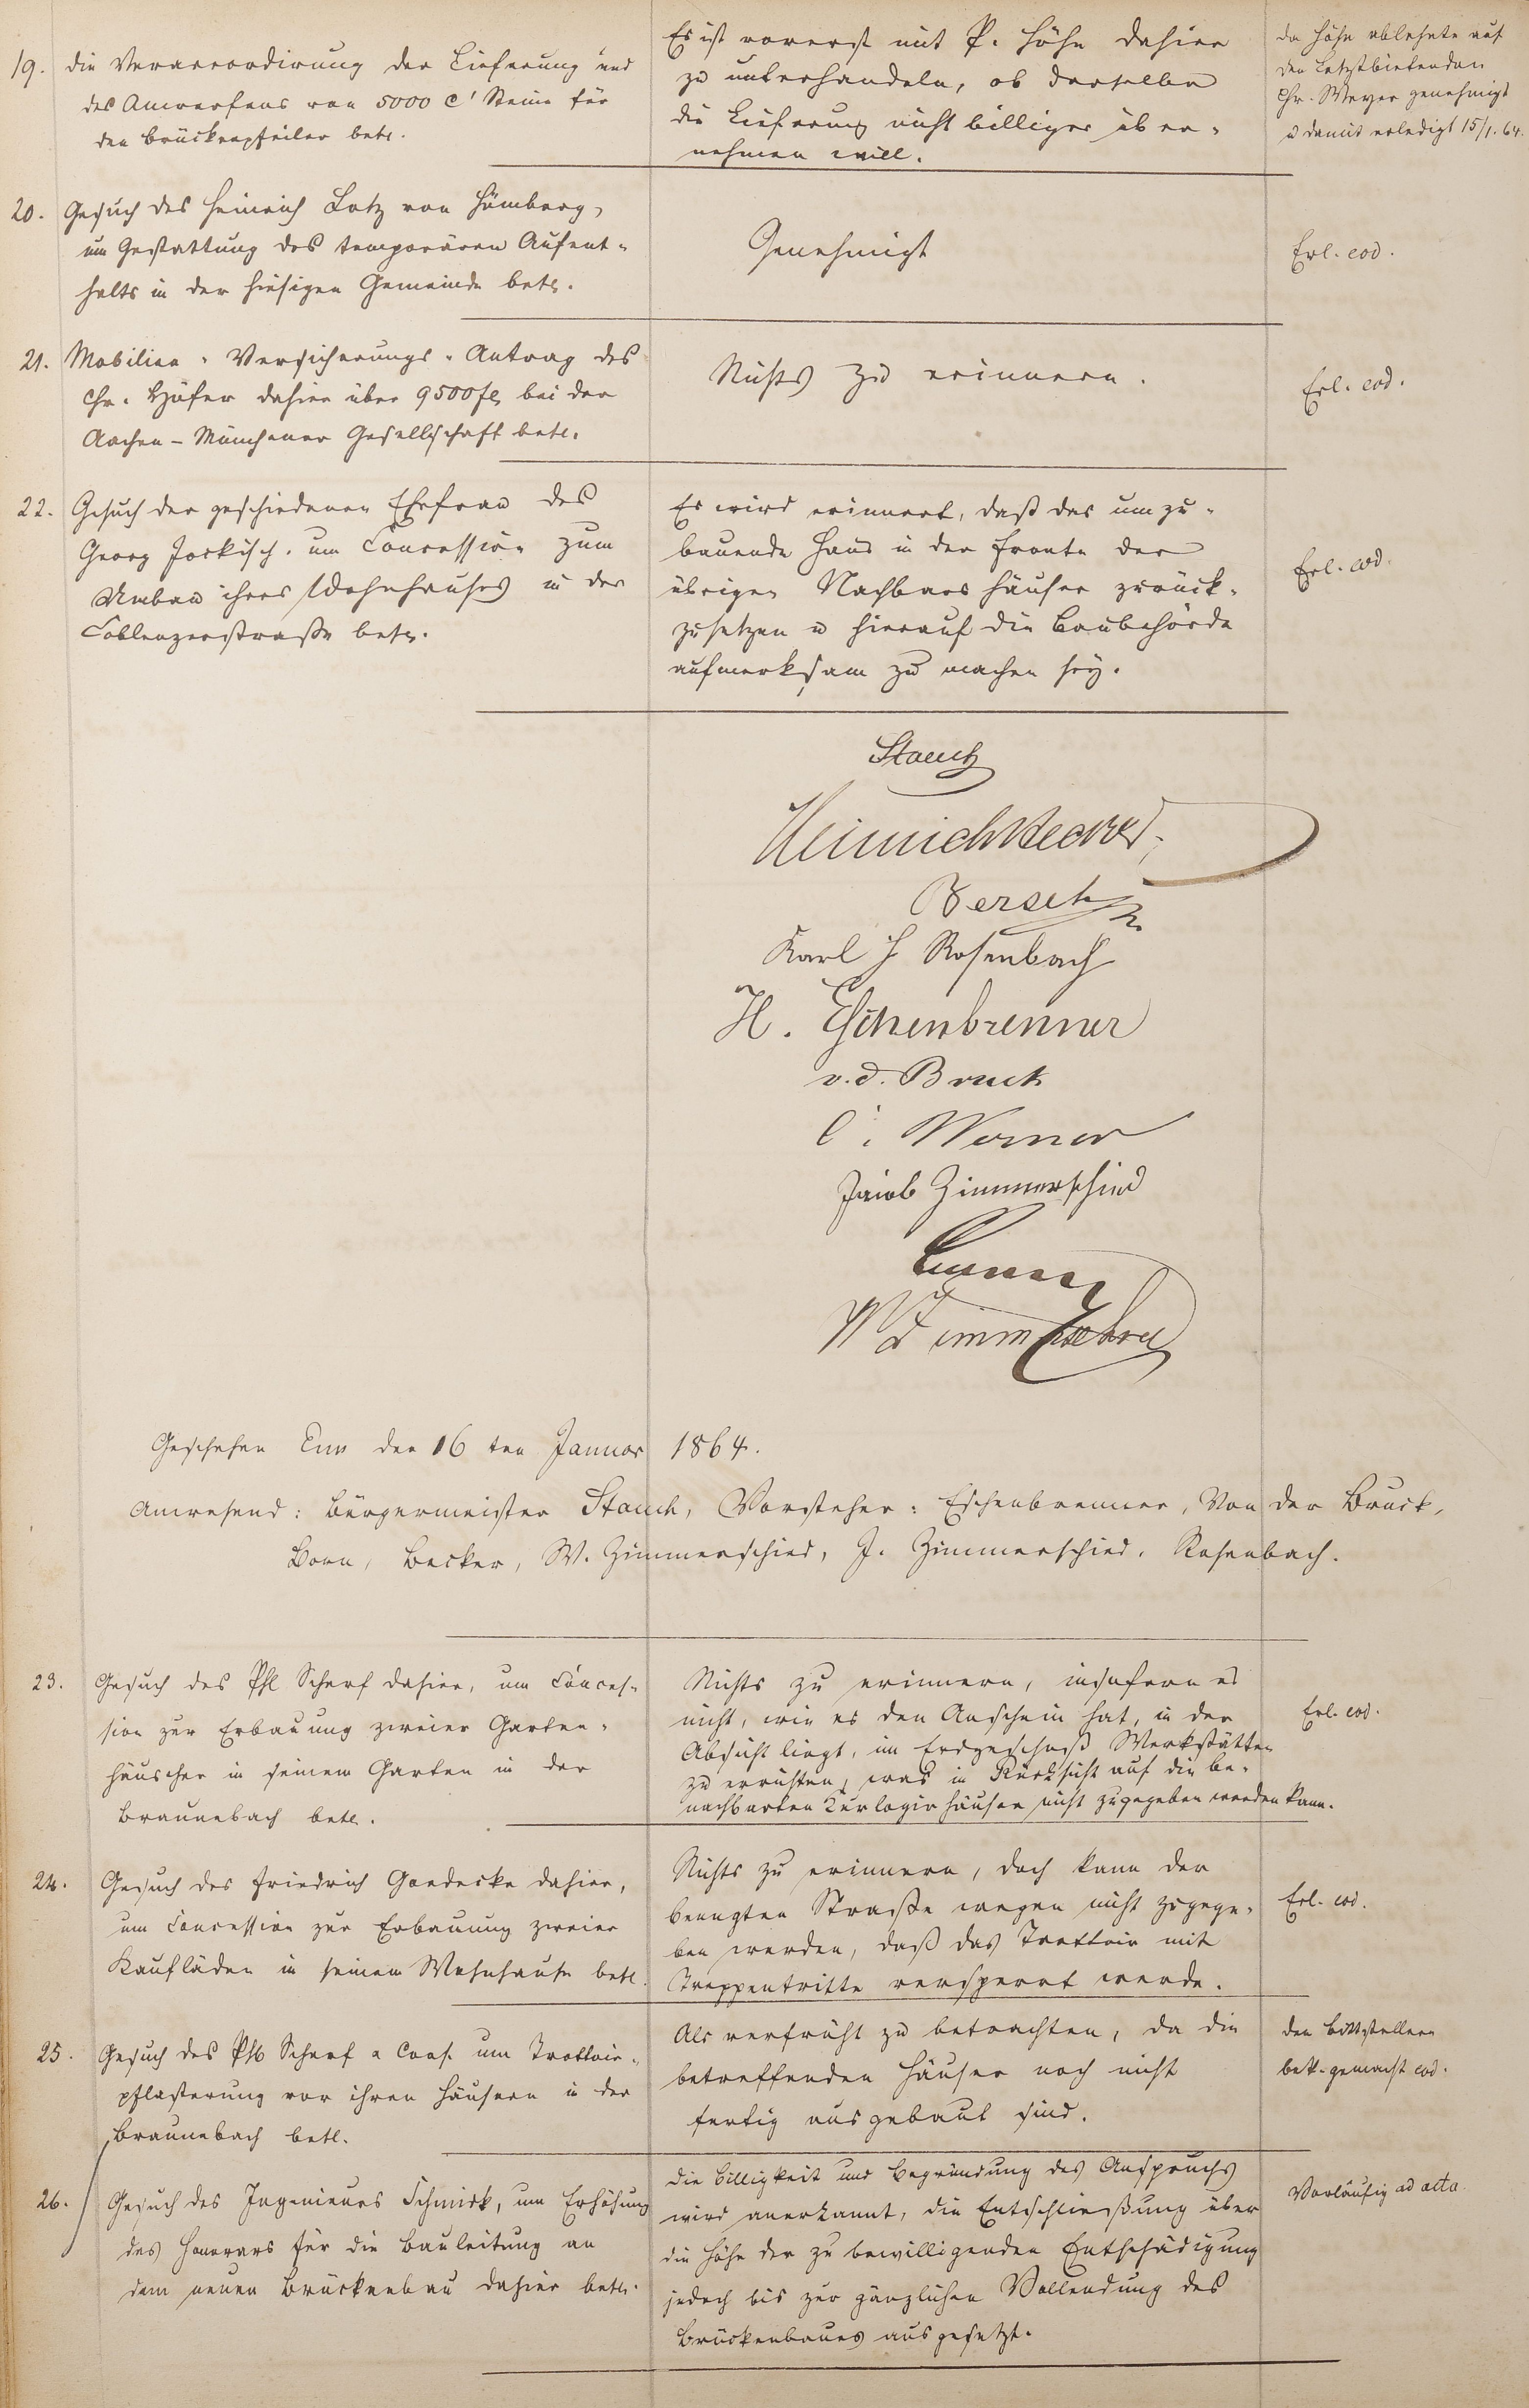 19. Die Veraccordirung der Lieferung und
des Anwerfens von 5000 C' Steine für
den Brückenpfeiler betr.
Es ist vorerst mit P. Höhn dahier
zu unterhandeln, ob derselbe
die Lieferung nicht billiger über-
nehmen will.
da Höhn ablehnte auf
den Letztbietenden
Chr. Meyer genehmigt
u damit erledigt 15/1. 64.
20. Gesuch des Heinrich Lotz von Hömberg,
um Gestattung des temporären Aufent-
halts in der hiesigen Gemeinde betr.
Genehmigt
Erl. eod.
21. Mobilien-Versicherungs-Antrag des
Chr. Höfer dahier über 9500 fl bei der
Aachen-Münchener Gesellschaft betr.
Nichts zu erinnern.
Erl. eod.
22. Gesuch der geschiedenen Ehefrau des
Georg Jockisch. um Concession zum
Umbau ihres Wohnhauses in der
Coblenzerstraße betr.
Es wird erinnert, daß das umzu-
bauende Haus in der Fronte der
übrigen Nachbars Häuser zurück-
zusetzen u hierauf die Baubehörde
aufmerksam zu machen sey.
Erl. eod.
Stauch
Heinrich Becker
Bersch
Karl H Rosenbach
H. Eschenbrenner
v. d. Bruck
C. Werner
Jacob Zimmerschied
W Zimmerschied
Geschehen Ems den 16ten Januar 1864.
Anwesend: Bürgermeister Stauch, Vorsteher: Eschenbrenner, Von der Bruck,
Born, Becker, W. Zimmerschied, J. Zimmerschied, Rosenbach.
23. Gesuch des Phl Scharf dahier, um Conces-
sion zur Erbauung zweier Garten-
häuscher in seinem Garten in der
Braunebach betr.
Nichts zu erinnern, insofern es
nicht, wie es den Anschein hat, in der
Absicht liegt, im Erdgeschoß Werkstätten
zu errichten, was in Rücksicht auf die be-
nachbarten Kurlogirhäuser nicht zugegeben werden kann.
Erl. eod.
24. Gesuch des Friedrich Goedecke dahier,
um Concession zur Erbauung zweier
Kaufläden in seinem Wohnhause betr.
Nichts zu erinnern, doch kann der
beengten Straße wegen nicht zugege-
ben werden, daß das Trottoir mit
Treppentritte versperrt werde.
Erl. eod.
25. Gesuch des Phl Scharf & Cons. um Trottoir-
pflasterung vor ihren Häusern in der
Braunebach betr.
Als verfrüht zu betrachten, da die
betreffenden Häuser noch nicht
fertig ausgebaut sind.
den Bittstellern
bek. gemacht eod.
26. Gesuch des Ingenieurs Schmick, um Erhöhung
des Honorars für die Bauleitung an
dem neuen Brückenbau dahier betr.
Die Billigkeit und Begründung des Anspruchs
wird anerkannt, die Entschließung über
die Höhe der zu bewilligenden Entschädigung
jedoch bis zur gänzlichen Vollendung des
Brückenbaues ausgesetzt.
Vorläufig ad acta.